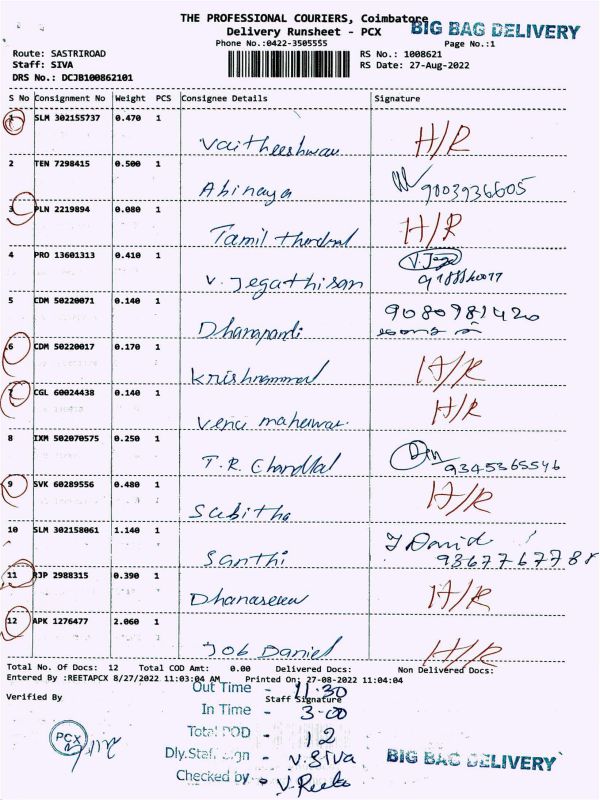 THE PROFESSIONAL COURIERS, Coimbatore
BIG BAG DELIVERY
Delivery Runsheet - PCX
Phone No.:0422-3505555
Page No.:1
Route: SASTRIROAD
RS No.: 1008621
Staff: SIVA
RS Date: 27-Aug-2022
DRS No.: DCJB100862101
S No Consignment No Weight PCS Consignee Details Signature
1 SLM 302155737 0.470 1
Vaitheeshwar H/R
2 TEN 7298415 0.500 1
Abinaya 9003936605
3 PLN 2219894 0.080 1
Tamil H/R
4 PRO 13601313 0.410 1
V. Jegathisan V. Jega
5 CDM 50220071 0.140 1
Dhanapandi 9080981420
6 CDM 50220017 0.170 1
Krishnammal H/R
7 CGL 60024438 0.140 1
Venu maheswar. H/R
8 IXM 502070575 0.250 1
T.R. Chandlal 9345365546
9 SVK 60289556 0.480 1
Sabitha H/R
10 SLM 302158061 1.140 1
Santhi J David
11 RJP 2988315 0.390 1
Dhanaseeen H/R
12 APK 1276477 2.060 1
JOB Daniel H/R
Total No. Of Docs: 12 Total COD Amt: 0.00 Delivered Docs: Non Delivered Docs:
Entered By :REETAPCX 8/27/2022 11:03:04 AM Printed On: 27-08-2022 11:04:04
Out Time - 11.30
Verified By Staff Signature
In Time - 3-00
Total POD - 12
PCX
Dly.Staf. Sign - V.SIVA
BIG BAG DELIVERY
Checked by V.Reeta